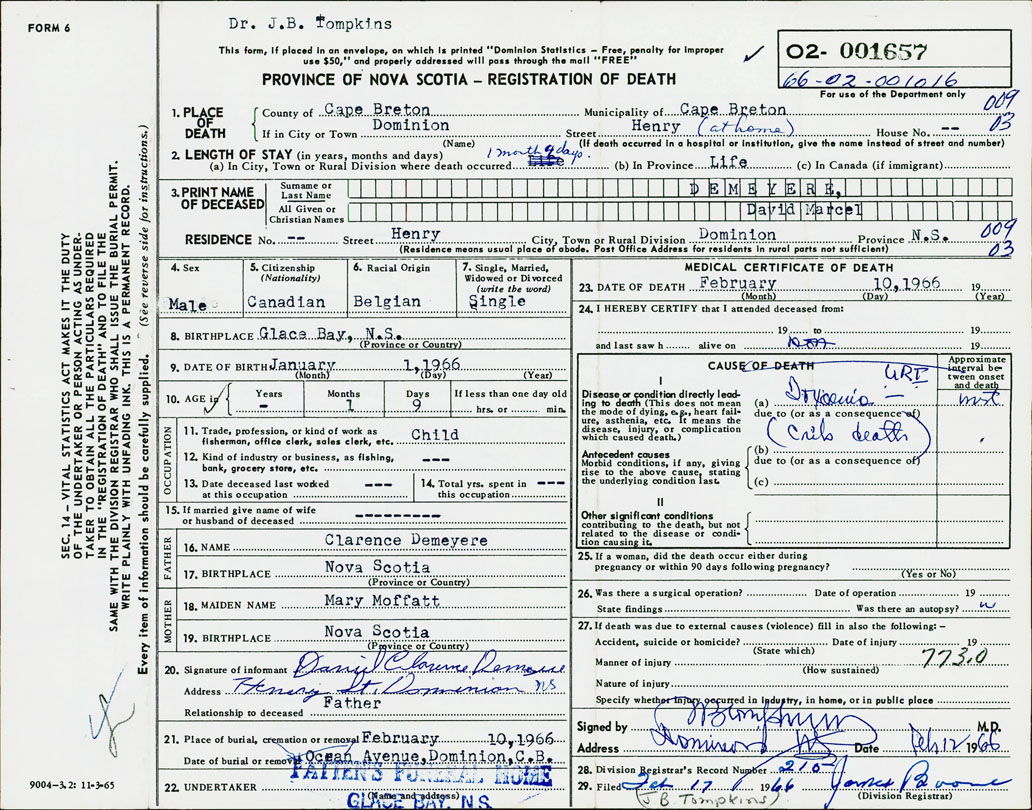 FORM 6
Dr. J.B. Tompkins
This form, if placed in an envelope, on which is printed "Dominion Statistics – Free, penalty for improper
use $50," and properly addressed will pass through the mail "FREE"
PROVINCE OF NOVA SCOTIA – REGISTRATION OF DEATH
O2- 001657
66-02-001016
For use of the Department only
009
03
1. PLACE OF DEATH
County of Cape Breton Municipality of Cape Breton
If in City or Town Dominion Street Henry (at home) House No. --
(Name) (If death occurred in a hospital or institution, give the name instead of street and number)
2. LENGTH OF STAY (in years, months and days) 1 month 9 days.
(a) In City, Town or Rural Division where death occurred Life (b) In Province Life (c) In Canada (if immigrant)
3. PRINT NAME OF DECEASED
Surname or Last Name DEMEYERE,
All Given or Christian Names David Marcel
RESIDENCE No. -- Street Henry City, Town or Rural Division Dominion Province N.S.
(Residence means usual place of abode. Post Office Address for residents in rural parts not sufficient)
009
03
4. Sex
Male
5. Citizenship
(Nationality)
Canadian
6. Racial Origin
Belgian
7. Single, Married,
Widowed or Divorced
(write the word)
Single
8. BIRTHPLACE Glace Bay, N.S.
(Province or Country)
9. DATE OF BIRTH January 1, 1966
(Month) (Day) (Year)
10. AGE in
Years Months Days If less than one day old
- 1 9 hrs. or min.
OCCUPATION
11. Trade, profession, or kind of work as
fisherman, office clerk, sales clerk, etc. Child
12. Kind of industry or business, as fishing,
bank, grocery store, etc. ---
13. Date deceased last worked
at this occupation ---
14. Total yrs. spent in
this occupation ---
15. If married give name of wife
or husband of deceased ---------
FATHER
16. NAME Clarence Demeyere
17. BIRTHPLACE Nova Scotia
(Province or Country)
MOTHER
18. MAIDEN NAME Mary Moffatt
19. BIRTHPLACE Nova Scotia
(Province or Country)
20. Signature of informant Daniel Clarence Demeyere
Address Henry St. Dominion NS
Relationship to deceased Father
21. Place of burial, cremation or removal February 10,1966
Date of burial or removal Ocean Avenue, Dominion, C.B.
22. UNDERTAKER PATTEN'S FUNERAL HOME
(Name and address)
GLACE BAY, N.S.
MEDICAL CERTIFICATE OF DEATH
23. DATE OF DEATH February 10,1966 19
(Month) (Day) (Year)
24. I HEREBY CERTIFY that I attended deceased from:
19 to 19
and last saw h alive on 19
CAUSE OF DEATH
Approximate interval between onset and death
I
Disease or condition directly leading to death (This does not mean the mode of dying, e.g., heart failure, asthenia, etc. It means the disease, injury, or complication which caused death.)
URI
(a)
due to (or as a consequence of)
(Crib death)
Antecedent causes
Morbid conditions, if any, giving rise to the above cause, stating the underlying condition last.
(b)
due to (or as a consequence of)
(c)
II
Other significant conditions
contributing to the death, but not related to the disease or condition causing it.
25. If a woman, did the death occur either during
pregnancy or within 90 days following pregnancy?
(Yes or No)
26. Was there a surgical operation? Date of operation 19
State findings Was there an autopsy?
27. If death was due to external causes (violence) fill in also the following: –
Accident, suicide or homicide? Date of injury 19
(State which)
Manner of injury 773.0
(How sustained)
Nature of injury
Specify whether injury occurred in industry, in home, or in public place
Signed by M.D.
Address Dominion NS Date Feb 12 1966
28. Division Registrar's Record Number 210
29. Filed Feb 17 1966 James Boone
(J B. Tompkins) (Division Registrar)
SEC. 14 – VITAL STATISTICS ACT MAKES IT THE DUTY
OF THE UNDERTAKER OR PERSON ACTING AS UNDER-
TAKER TO OBTAIN ALL THE PARTICULARS REQUIRED
IN THE "REGISTRATION OF DEATH" AND TO FILE THE
SAME WITH THE DIVISION REGISTRAR WHO SHALL ISSUE THE BURIAL PERMIT.
WRITE PLAINLY WITH UNFADING INK. THIS IS A PERMANENT RECORD.
Every item of information should be carefully supplied. (See reverse side for instructions.)
9004–3.2: 11-3-65